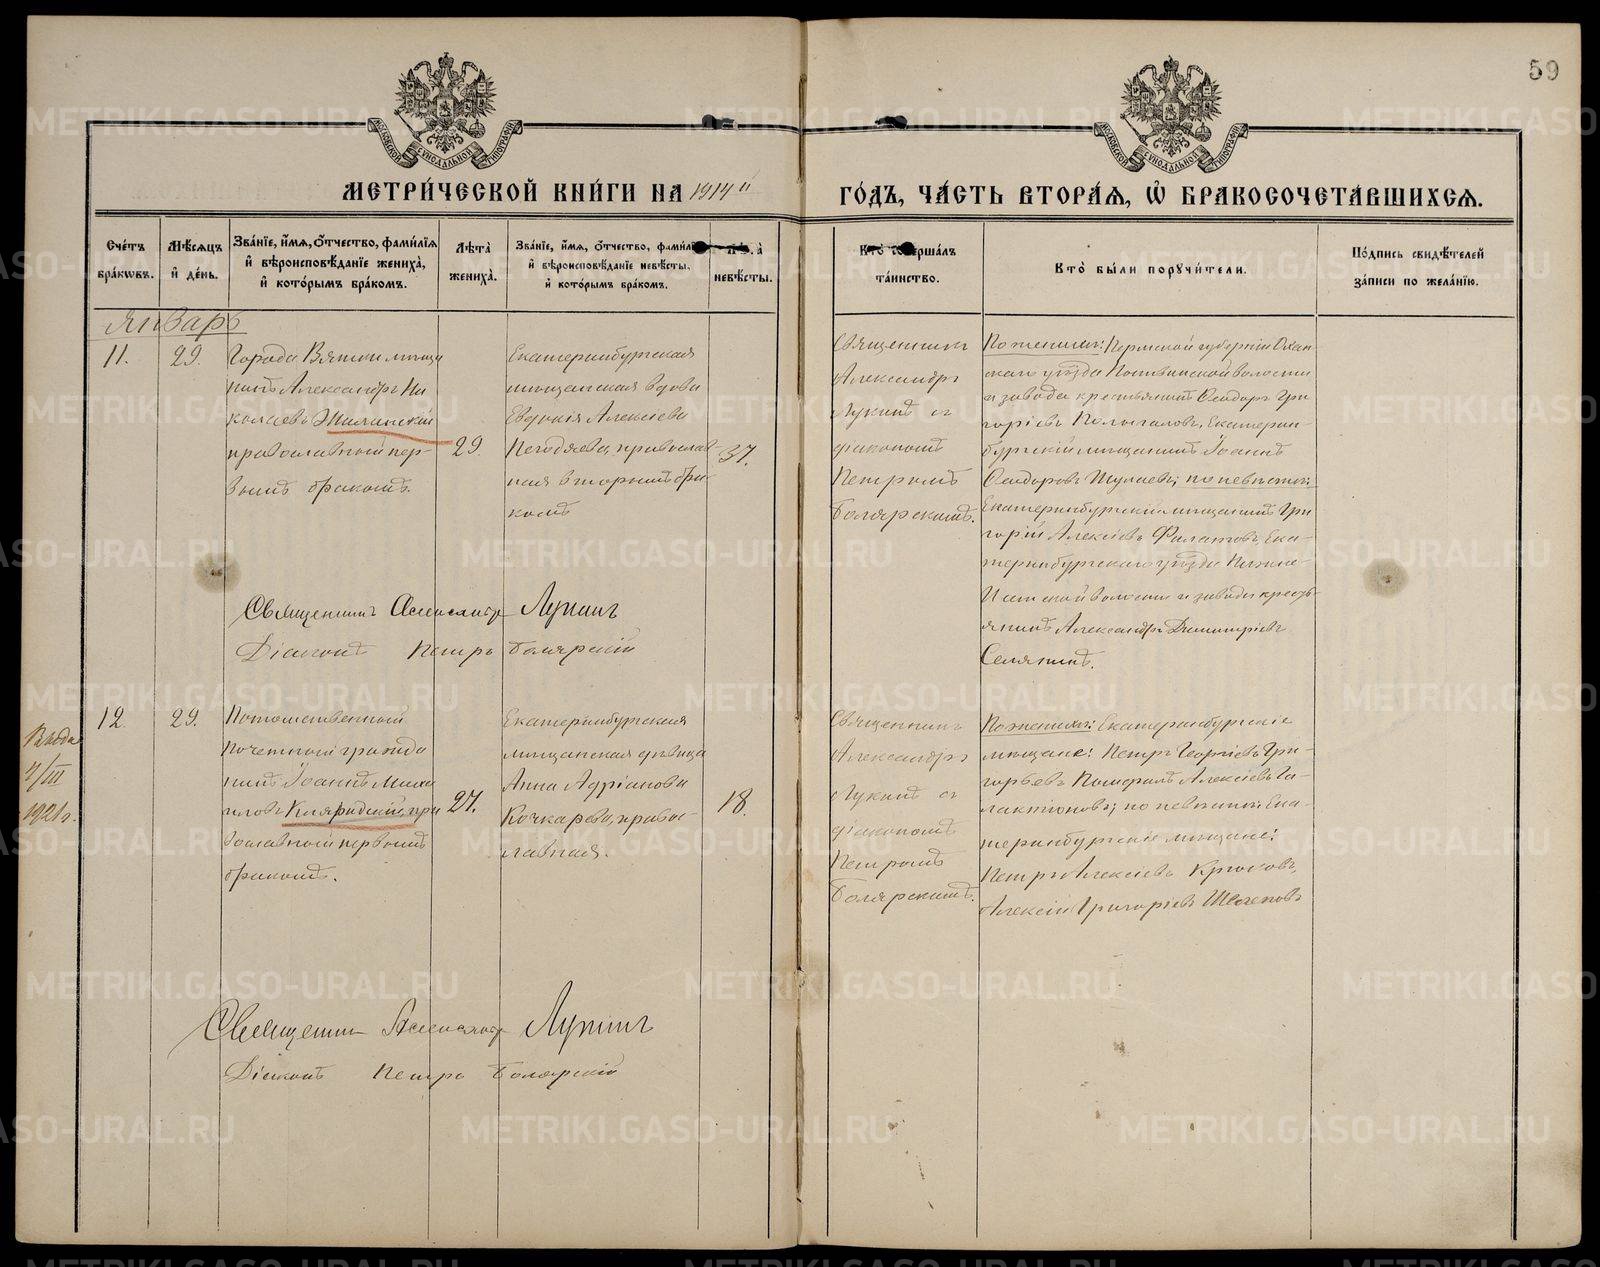 59
МОСКОВСКОЙ СѴНОДАЛЬНОЙ ТИПОГРАФІИ
МОСКОВСКОЙ СѴНОДАЛЬНОЙ ТИПОГРАФІИ
МЕТРИ́ЧЕСКОЙ КНИ́ГИ НА 1914й
ГО́ДЪ, ЧА́СТЬ ВТОРА́Ѧ, Ѽ БРАКОСОЧЕТА́ВШИХСѦ.
Сче́тъ бра́кѡвъ.
Мѣ́сѧцъ и҆ де́нь.
Зва́нїе, и҆́мѧ, ѻ҆́тчество, фами́лїѧ
и҆ вѣроисповѣ́данїе жениха̀,
и҆ кото́рымъ бра́комъ.
Лѣ́та̀ жениха̀.
Зва́нїе, и҆́мѧ, ѻ҆́тчество, фами́лїѧ
и҆ вѣроисповѣ́данїе невѣ́сты,
и҆ кото́рымъ бра́комъ.
Лѣ́та̀ невѣ́сты.
Кто̀ соверша́лъ та́инство.
Кто̀ бы́ли порꙋчи́тели.
По́дпись свидѣ́телей
за́писи по жела́нїю.
Январь
11.
29.
Города Вятки мѣща
нинъ Александръ Ни
колаевъ Жилинскій
православный пер-
вымъ бракомъ.
29.
Екатеринбургская
мѣщанская вдова
Евдокія Алексіева
Негодяева, православ
ная вторымъ бра-
комъ
37.
Священникъ
Александръ
Лукинъ съ
діакономъ
Петромъ
Боярскимъ.
По женихѣ: Пермской губерніи Охан
скаго уѣзда
и завода крестьянинъ Ѳеодоръ Гри
горіевъ Екатерин-
бургскій мѣщанинъ Іоаннъ
Ѳеодоровъ по невѣстѣ:
Екатеринбургскій мѣщанинъ Гри
горій Алексіевъ Филатовъ, Ека-
теринбургскаго уѣзда Нижне-
Исетской волости и завода кресть-
янинъ Александръ Димитріевъ
Селянинъ.
Священникъ Александръ Лукинъ
Діаконъ Петръ Боярскій
12
29.
Потомственный
почетный гражда
нинъ Іоаннъ Миха
иловъ пра
вославный первымъ
бракомъ.
27.
Екатеринбургская
мѣщанская дѣвица
Анна Адріанова
Кочкарева, правос-
лавная.
18.
Священникъ
Александръ
Лукинъ съ
діакономъ
Петромъ
Боярскимъ.
По женихѣ: Екатеринбургскіе
мѣщане: Петръ Георгіевъ Гри-
горьевъ Алексіевъ Га-
лактіоновъ; по невѣстѣ: Ека-
теринбургскіе мѣщане:
Петръ Алексіевъ Крюковъ,
Алексій Григоріевъ
4/III
1921 г.
Священникъ Александръ Лукинъ
Діаконъ Петръ Боярскій
METRIKI.GASO-URAL.RU